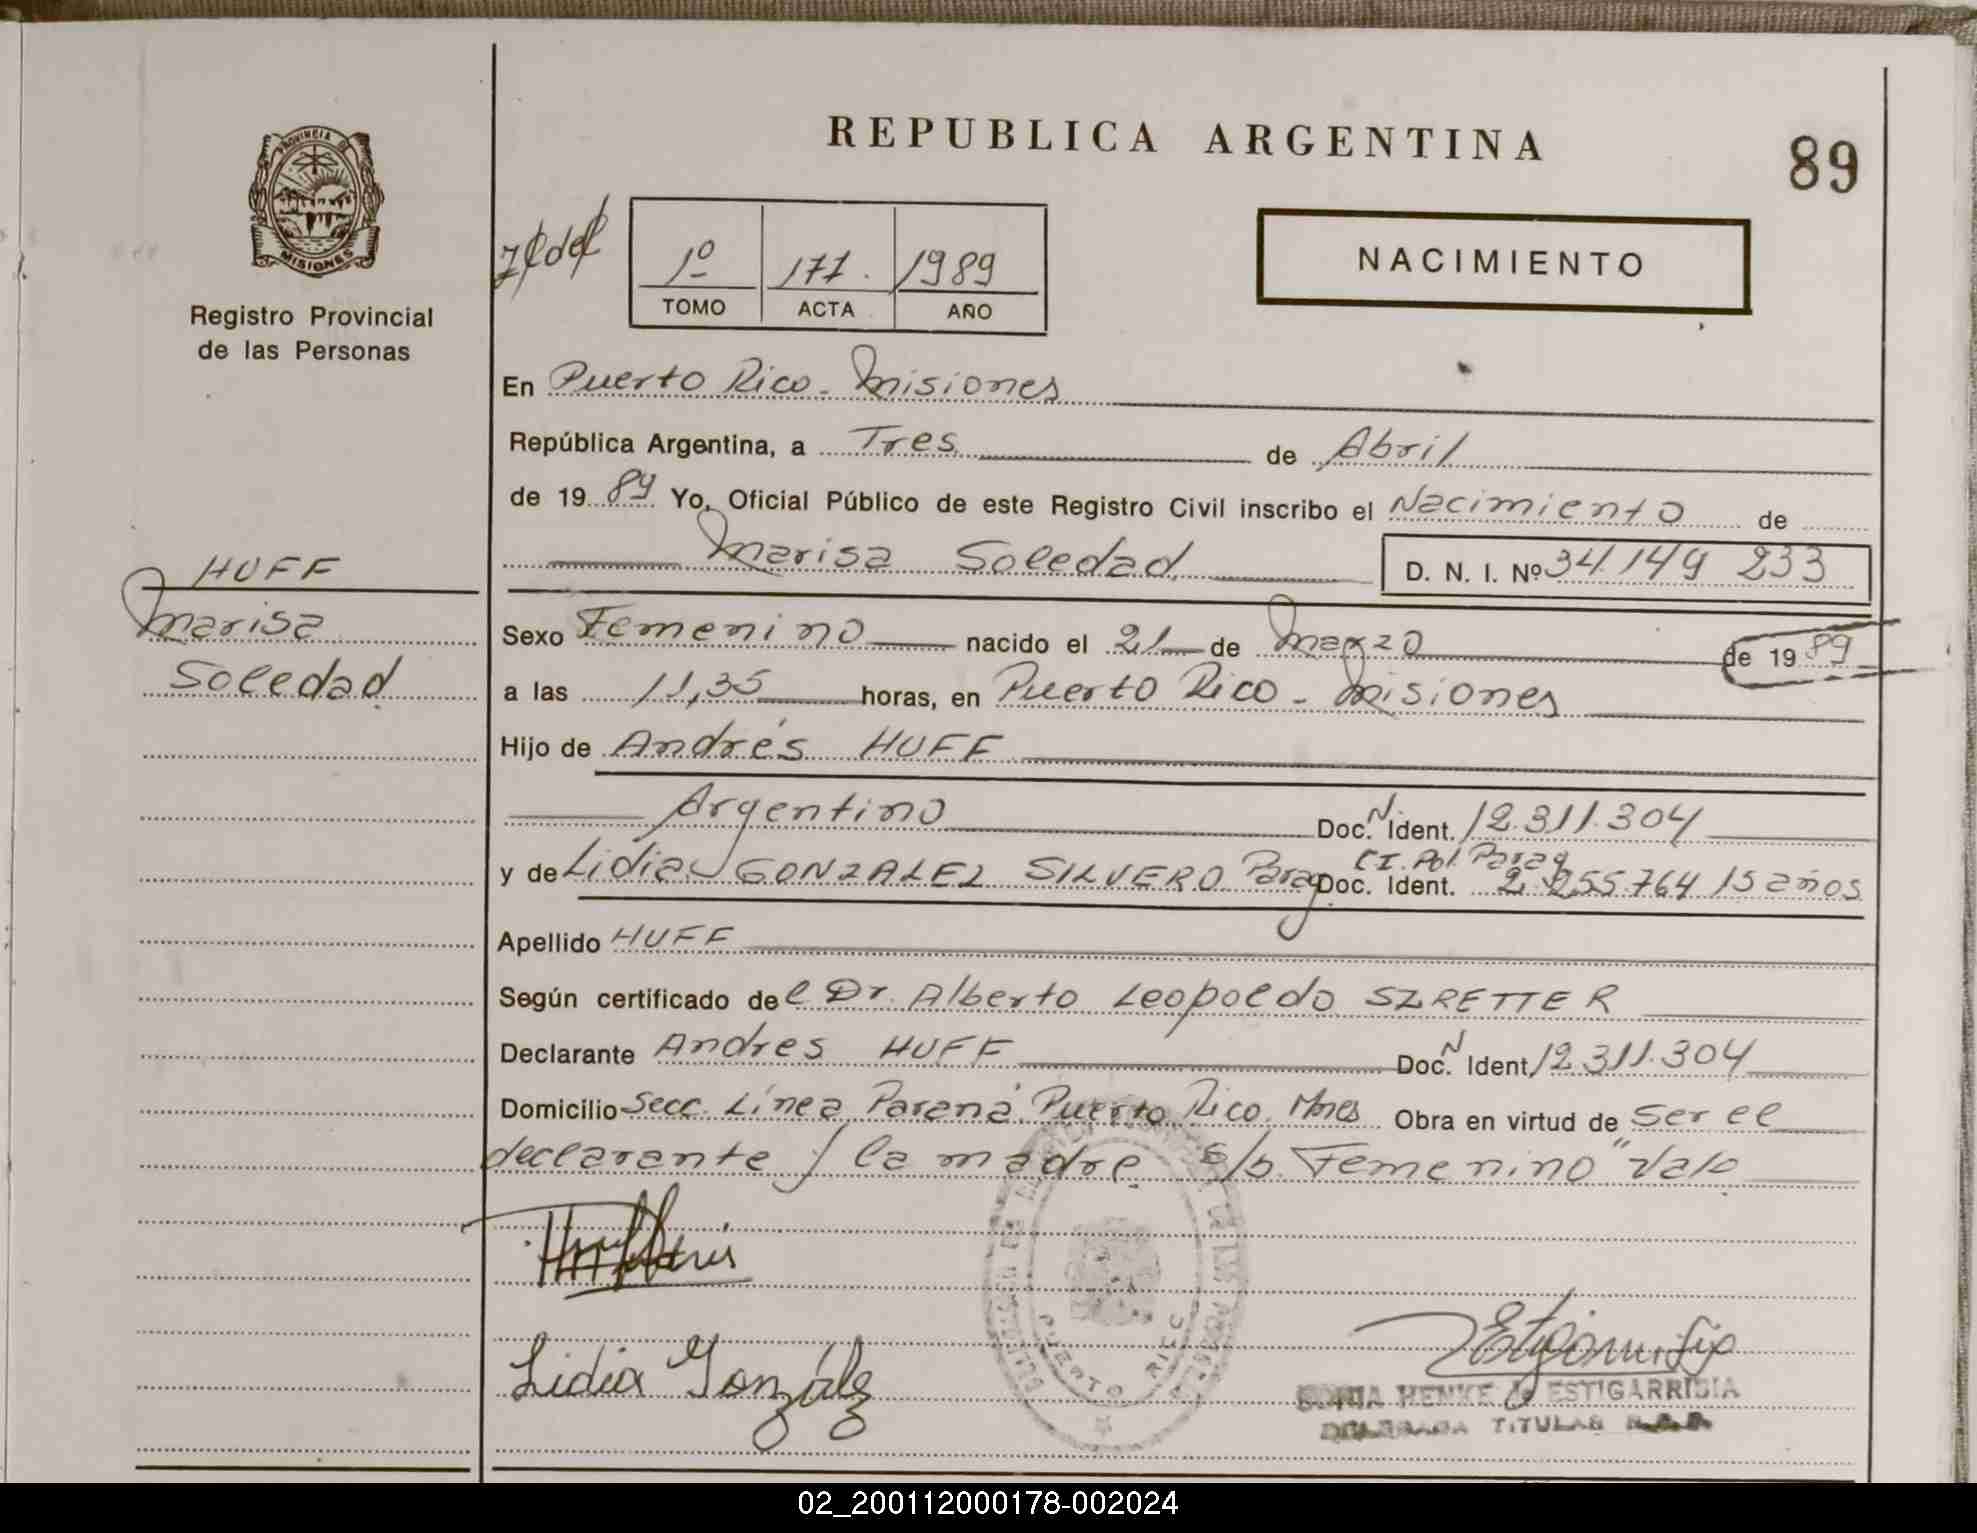 REPUBLICA ARGENTINA
89
PROVINCIA DE
MISIONES
Registro Provincial
de las Personas
1º 177. 1989
TOMO ACTA AÑO
NACIMIENTO
En Puerto Rico - Misiones
República Argentina, a Tres de Abril
de 19 89 Yo, Oficial Público de este Registro Civil inscribo el Nacimiento de
Marisa Soledad D. N. I. Nº 34.149 233
HUFF
Marisa
Soledad
Sexo Femenino nacido el 21 de Marzo de 19 89
a las 11,35 horas, en Puerto Rico - Misiones
Hijo de Andrés HUFF
Argentino Doc. N. Ident. 12.311.304
y de Lidia GONZALEZ SILVERO Parag Doc. Ident. C.I. Pol. Parag 2.255.764 15 años
Apellido HUFF
Según certificado del Dr. Alberto Leopoldo SZRETTER
Declarante Andres HUFF Doc. N. Ident. 12.311.304
Domicilio Secc. Línea Paraná. Puerto Rico. Mnes Obra en virtud de Ser el
declarante y la madre. s/b. Femenino" Vale
Lidia González
PUERTO RICO
SONIA HENKE de ESTIGARRIBIA
DELEGADA TITULAR
02_200112000178-002024